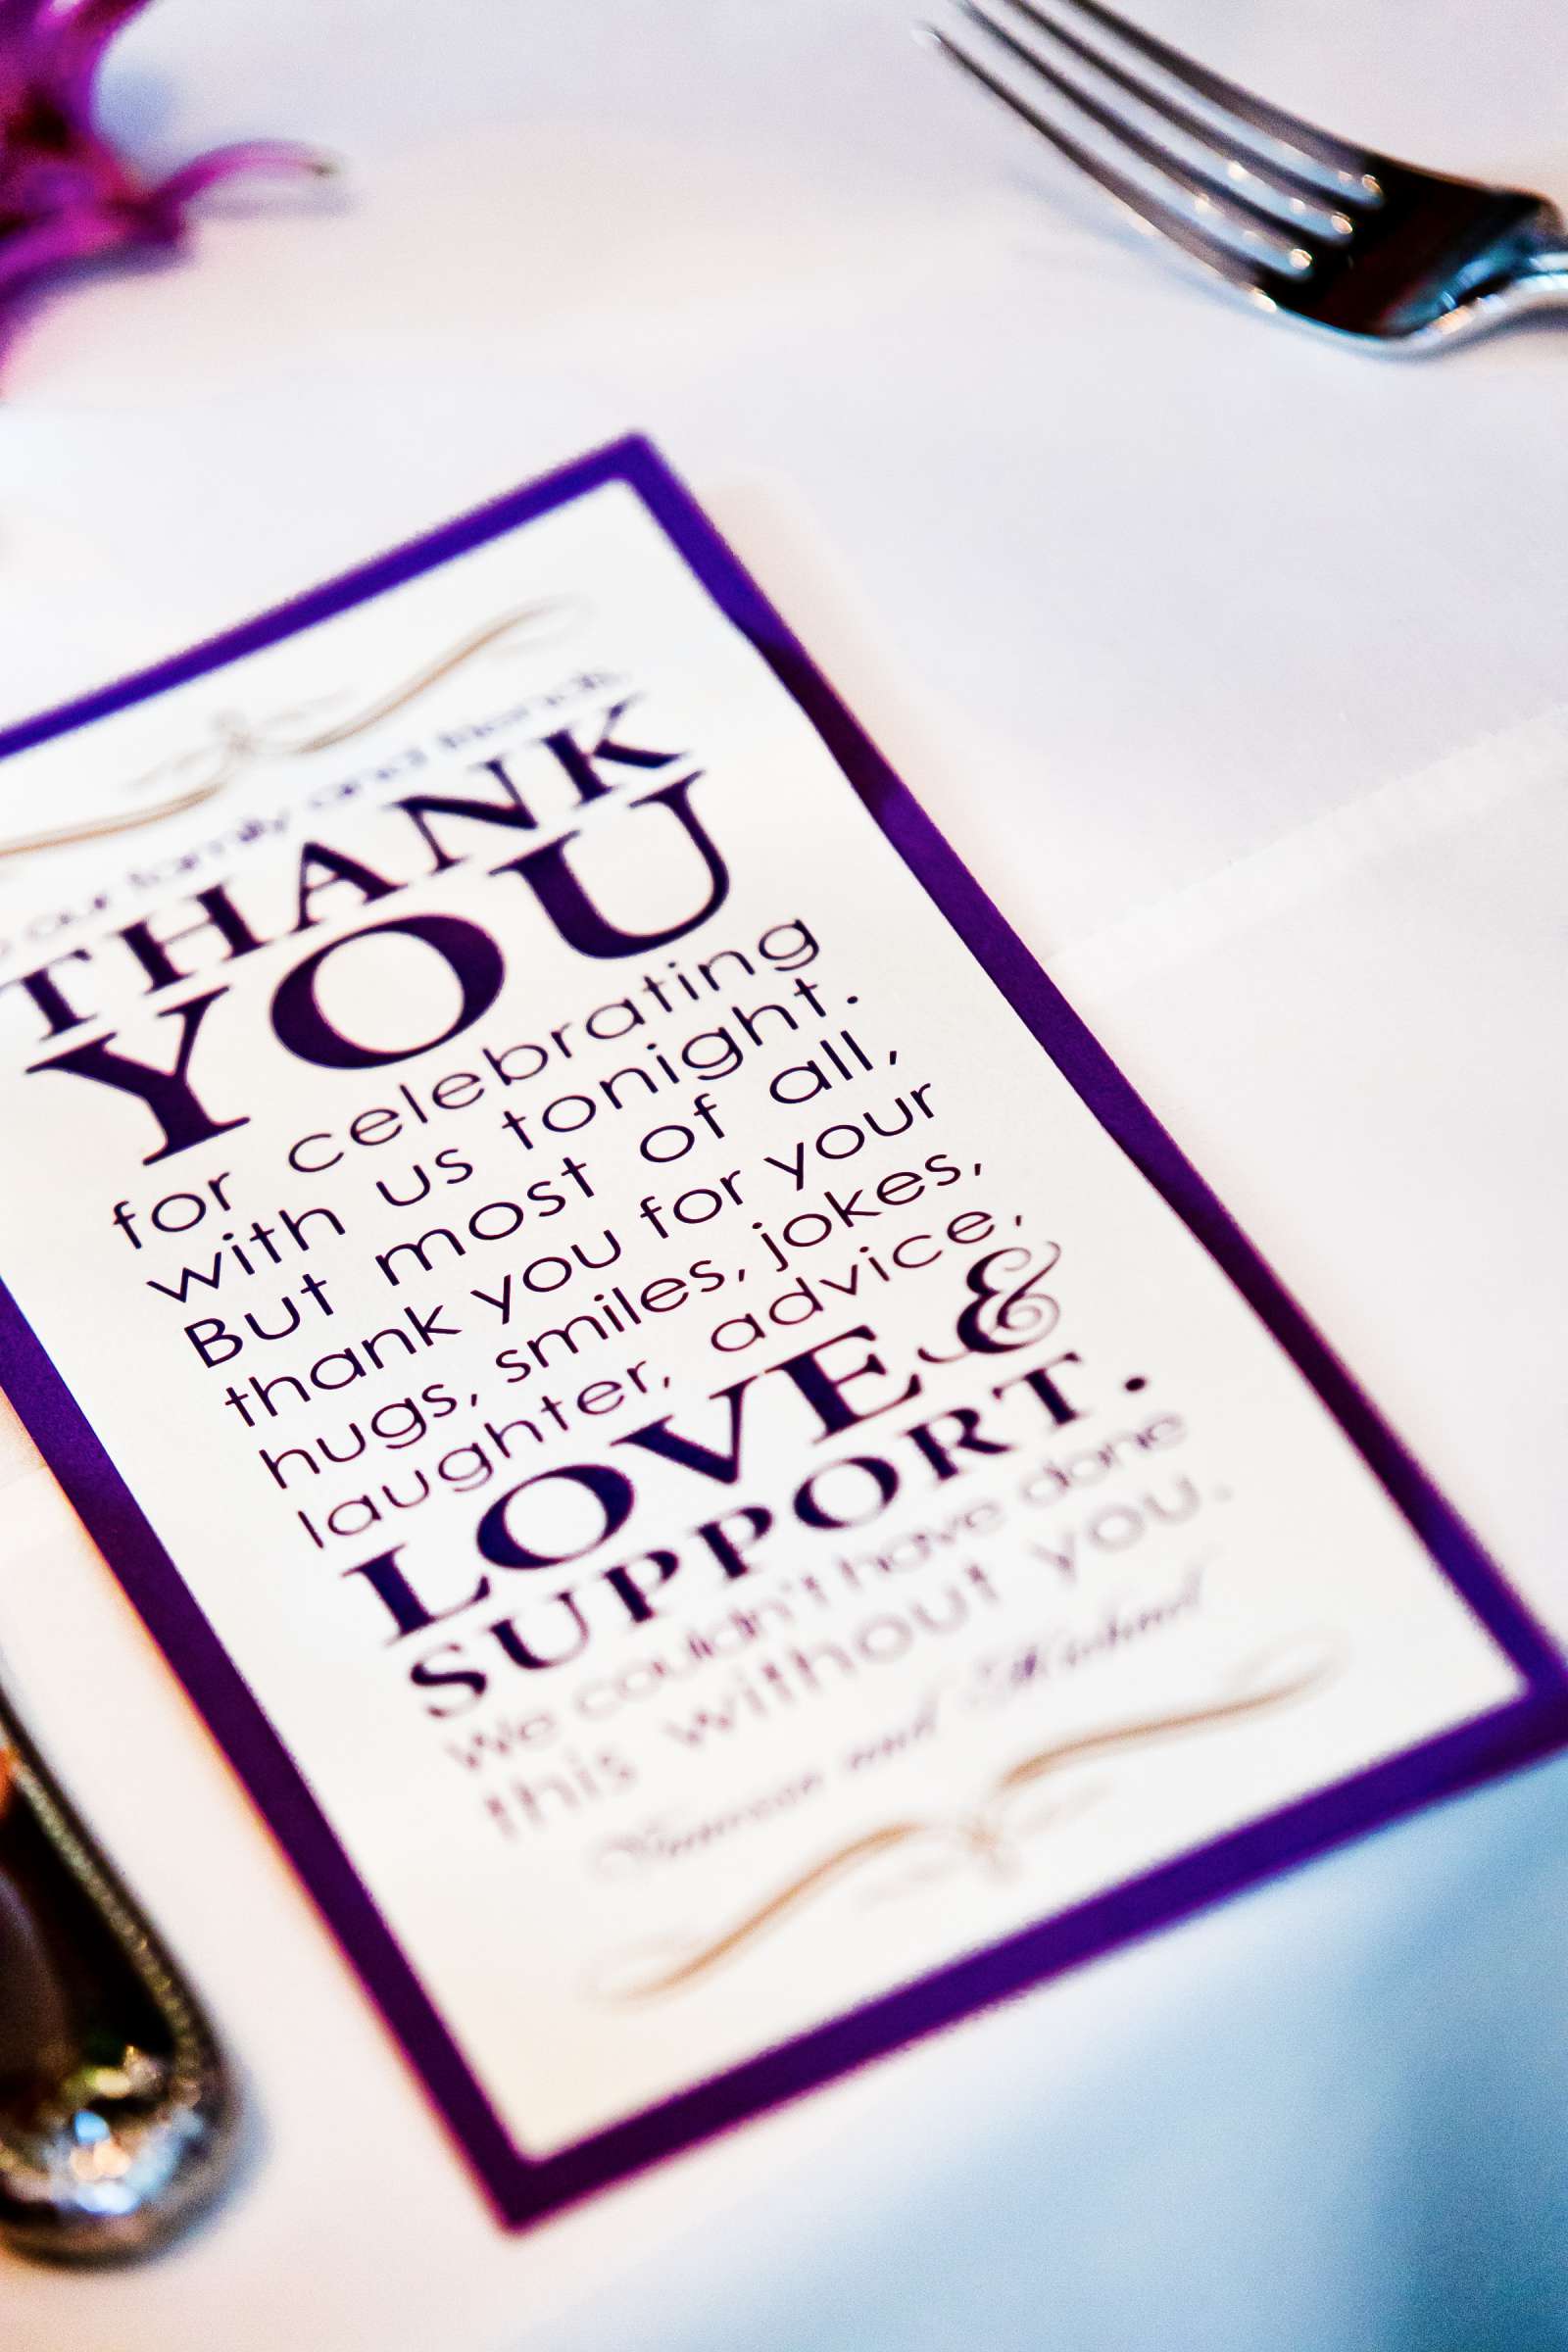 our family and friends,
THANK
YOU
for celebrating
with us tonight.
But most of all,
thank you for your
hugs, smiles, jokes,
laughter, advice,
LOVE &
SUPPORT.
We couldn't have done
this without you.
and Michael